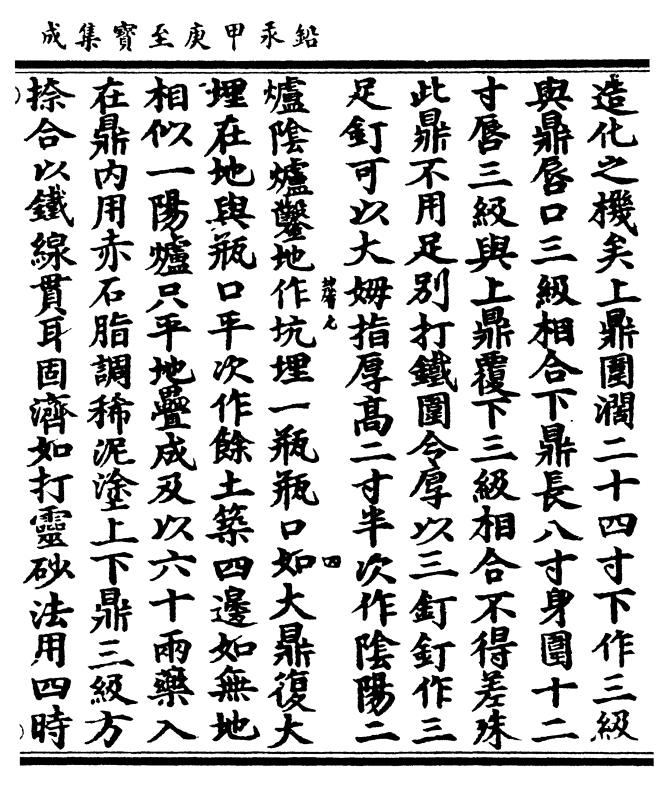 鉛汞甲庚至寶集成
造化之機矣上鼎圍濶二十四寸下作三級
與鼎唇口三級相合下鼎長八寸身圍十二
寸唇三級與上鼎覆下三級相合不得差殊
此鼎不用足別打鐵圍令厚以三釘釘作三
足釘可以大姆指厚高二寸半次作陰陽二
爐陰爐鑿地作坑埋一瓶瓶口如大鼎復大
埋在地與瓶口平次作餘土築四邊如無地
相似一陽爐只平地疊成及以六十兩藥入
在鼎內用赤石脂調稀泥塗上下鼎三級方
捺合以鐵線貫耳固濟如打靈砂法用四時
四